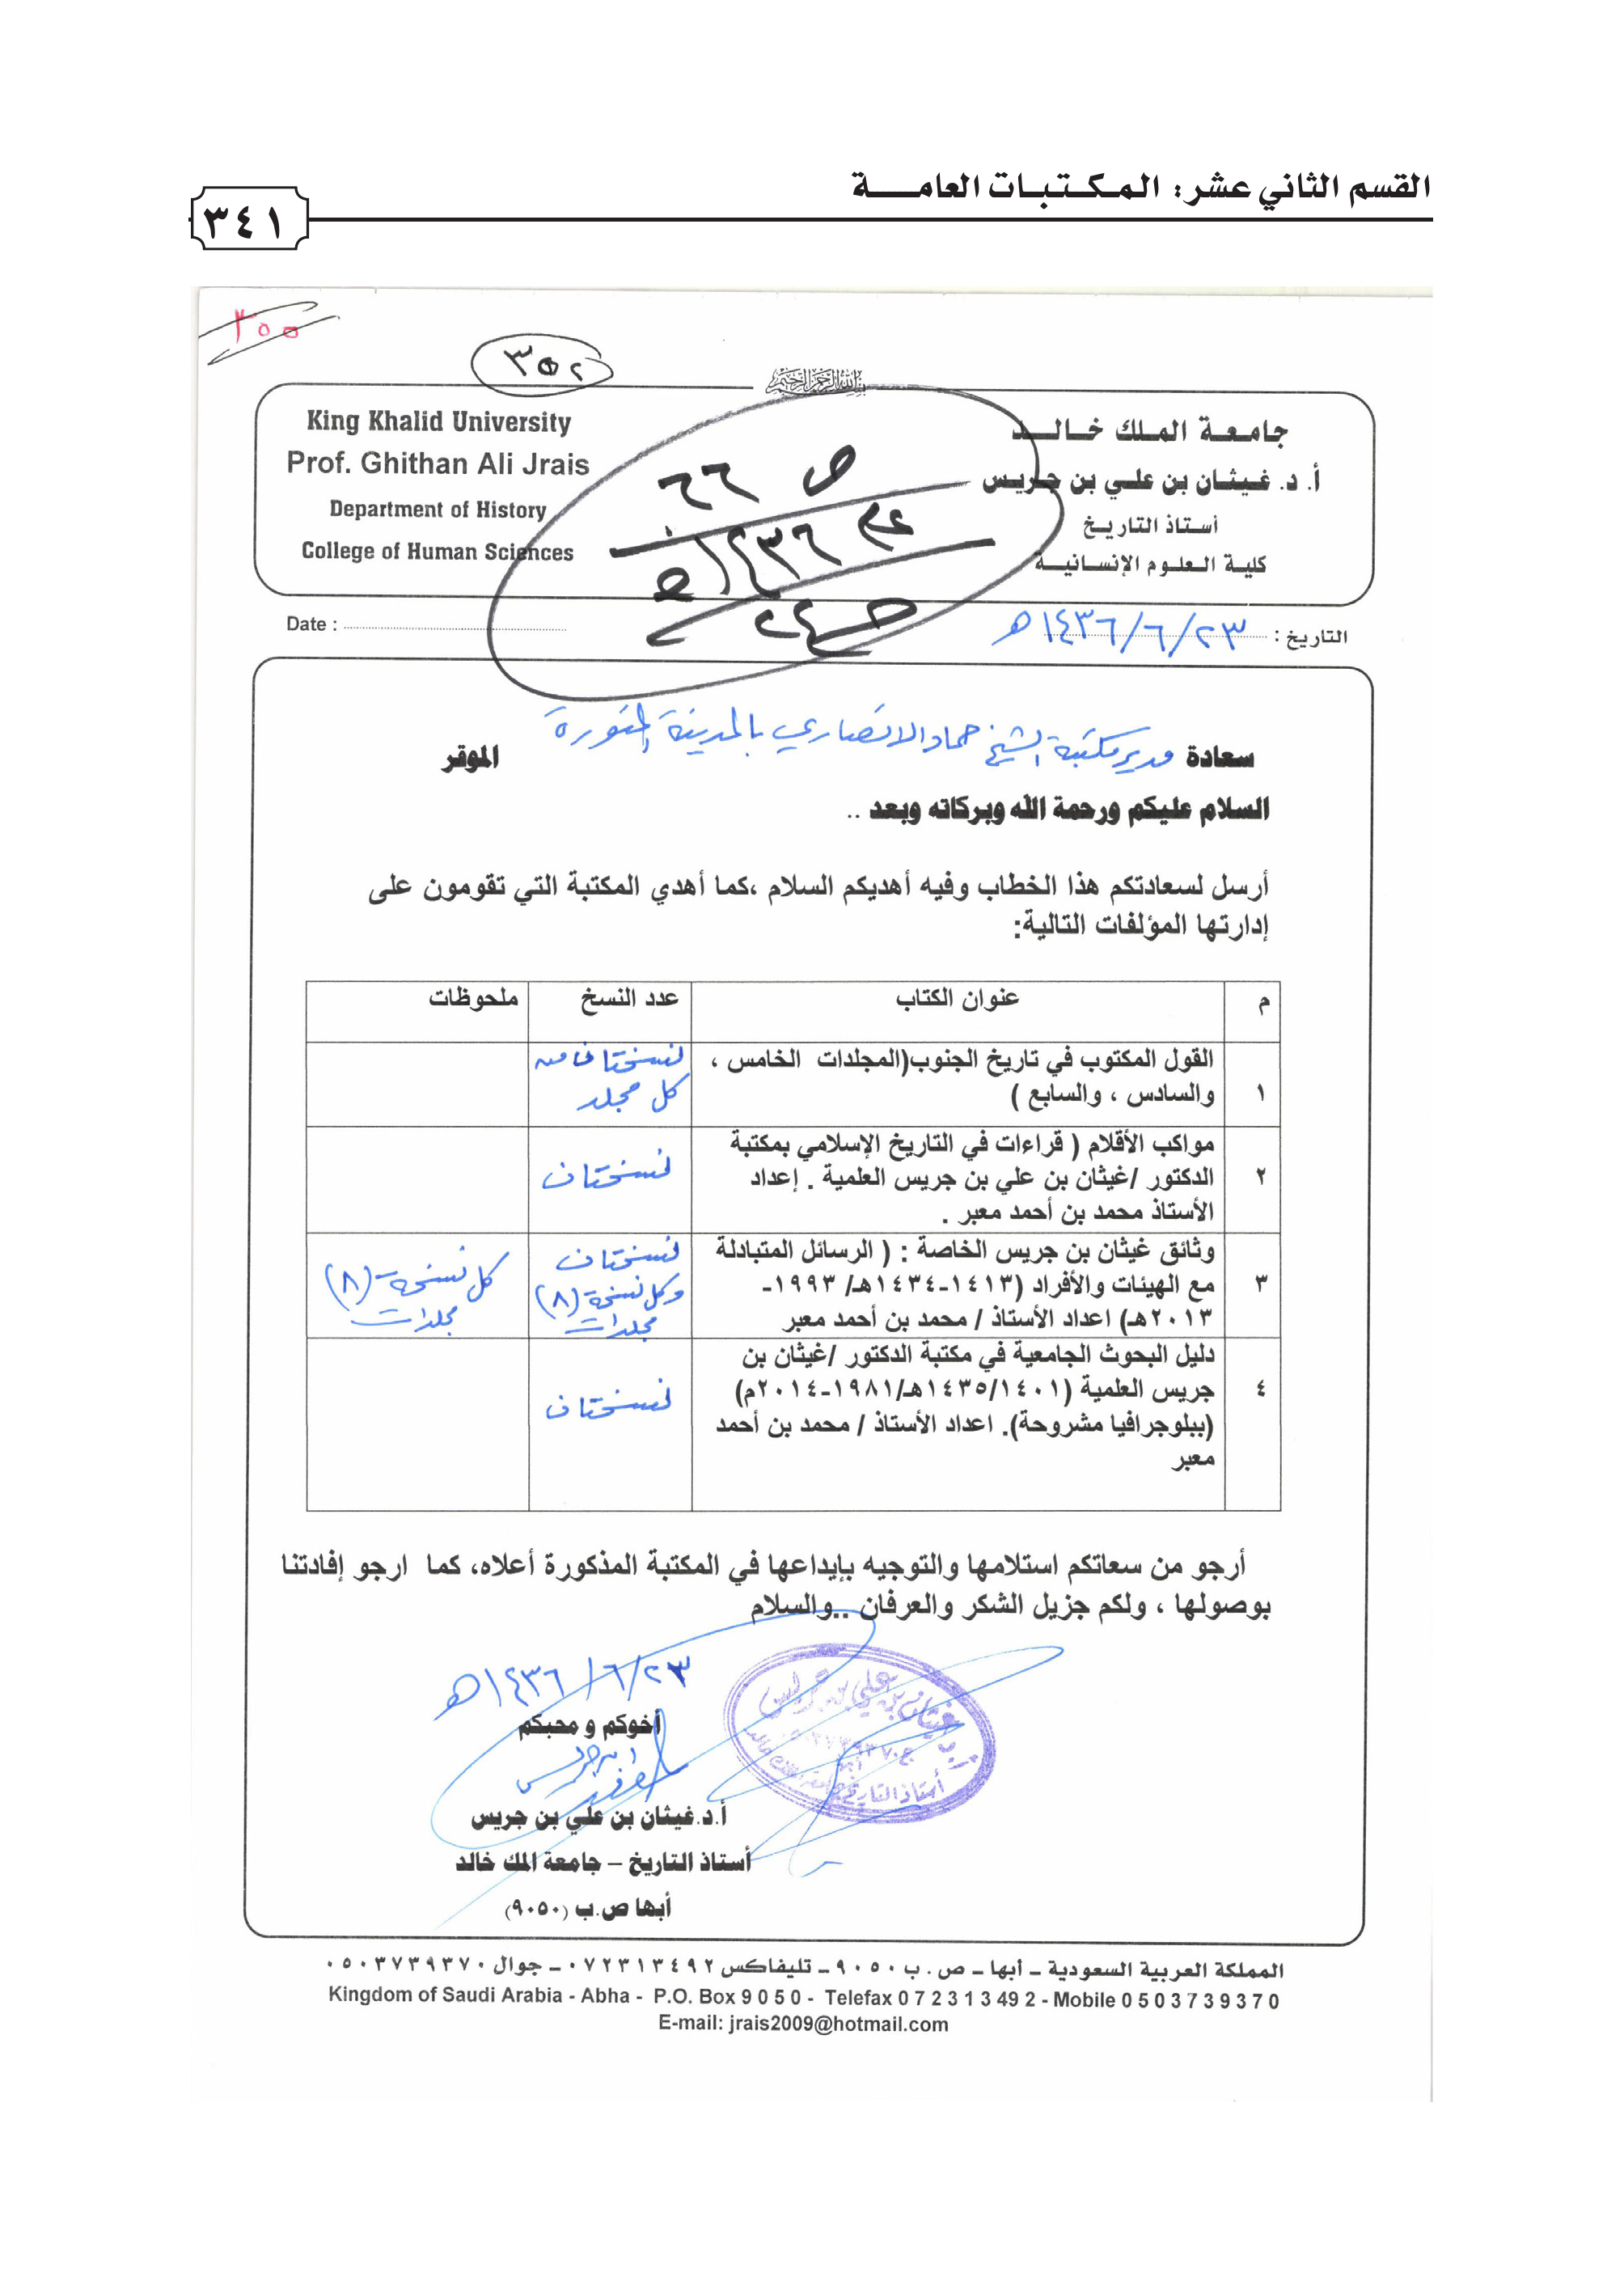 القسم الثاني عشر: المكتبات العامة
٣٤١
٣٥٢
بسم الله الرحمن الرحيم
King Khalid University
Prof. Ghithan Ali Jrais
Department of History
College of Human Sciences
جامعة الملك خالد
أ. د. غيثان بن علي بن جريس
أستاذ التاريخ
كلية العلوم الإنسانية
ص ٦٦
عام ١٤٣٦هـ
Date :
التاريخ : ١٤٣٦/٦/٢٣هـ
سعادة مدير مكتبة الشيخ حماد الانصاري بالمدينة المنورة الموقر
السلام عليكم ورحمة الله وبركاته وبعد ..
أرسل لسعادتكم هذا الخطاب وفيه أهديكم السلام ،كما أهدي المكتبة التي تقومون على
إدارتها المؤلفات التالية:
م عنوان الكتاب عدد النسخ ملحوظات
١ القول المكتوب في تاريخ الجنوب(المجلدات الخامس ،
والسادس ، والسابع )
نسختان من
كل مجلد
٢ مواكب الأقلام ( قراءات في التاريخ الإسلامي بمكتبة
الدكتور /غيثان بن علي بن جريس العلمية . إعداد
الأستاذ محمد بن أحمد معبر .
نسختان
٣ وثائق غيثان بن جريس الخاصة : ( الرسائل المتبادلة
مع الهيئات والأفراد (١٤١٣-١٤٣٤هـ/ ١٩٩٣-
٢٠١٣هـ) اعداد الأستاذ / محمد بن أحمد معبر
نسختان
وكل نسخة (٨)
مجلدات
كل نسخة (٨)
مجلدات
٤ دليل البحوث الجامعية في مكتبة الدكتور /غيثان بن
جريس العلمية (١٤٠١/١٤٣٥هـ/١٩٨١-٢٠١٤م)
(ببلوجرافيا مشروحة). اعداد الأستاذ / محمد بن أحمد
معبر
نسختان
أرجو من سعاتكم استلامها والتوجيه بإيداعها في المكتبة المذكورة أعلاه، كما ارجو إفادتنا
بوصولها ، ولكم جزيل الشكر والعرفان ..والسلام
١٤٣٦/٦/٢٣هـ
أخوكم و محبكم
أ.د.غيثان بن علي بن جريس
أستاذ التاريخ – جامعة الملك خالد
أبها ص.ب (٩٠٥٠)
المملكة العربية السعودية ـ أبها ـ ص . ب ٩٠٥٠ ـ تليفاكس ٠٧٢٣١٣٤٩٢ ـ جوال ٠٥٠٣٧٣٩٣٧٠
Kingdom of Saudi Arabia - Abha - P.O. Box 9 0 5 0 - Telefax 0 7 2 3 1 3 49 2 - Mobile 0 5 0 3 7 3 9 3 7 0
E-mail: jrais2009@hotmail.com